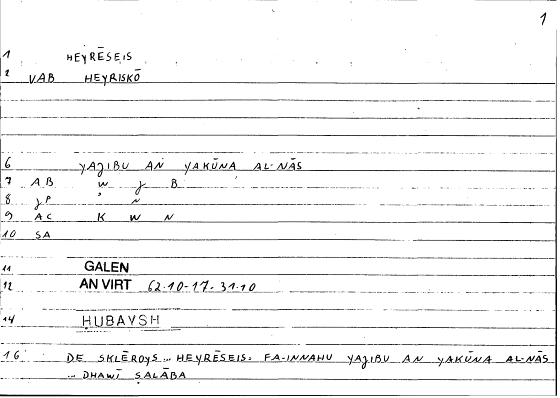 1
1 HEYRĒSEIS
2 VAB HEYRISKŌ
6 YAJIBU AN YAKŪNA AL-NĀS
7 AB W J B
8 JP ' N
9 AC K W N
10 SA
11 GALEN
12 AN VIRT 62.10-17.31.10
14 ḤUBAYSH
16 DE SKLĒROYS … HEYRĒSEIS: FA-INNAHU YAJIBU AN YAKŪNA AL-NĀS
… DHAWĪ ṢALĀBA